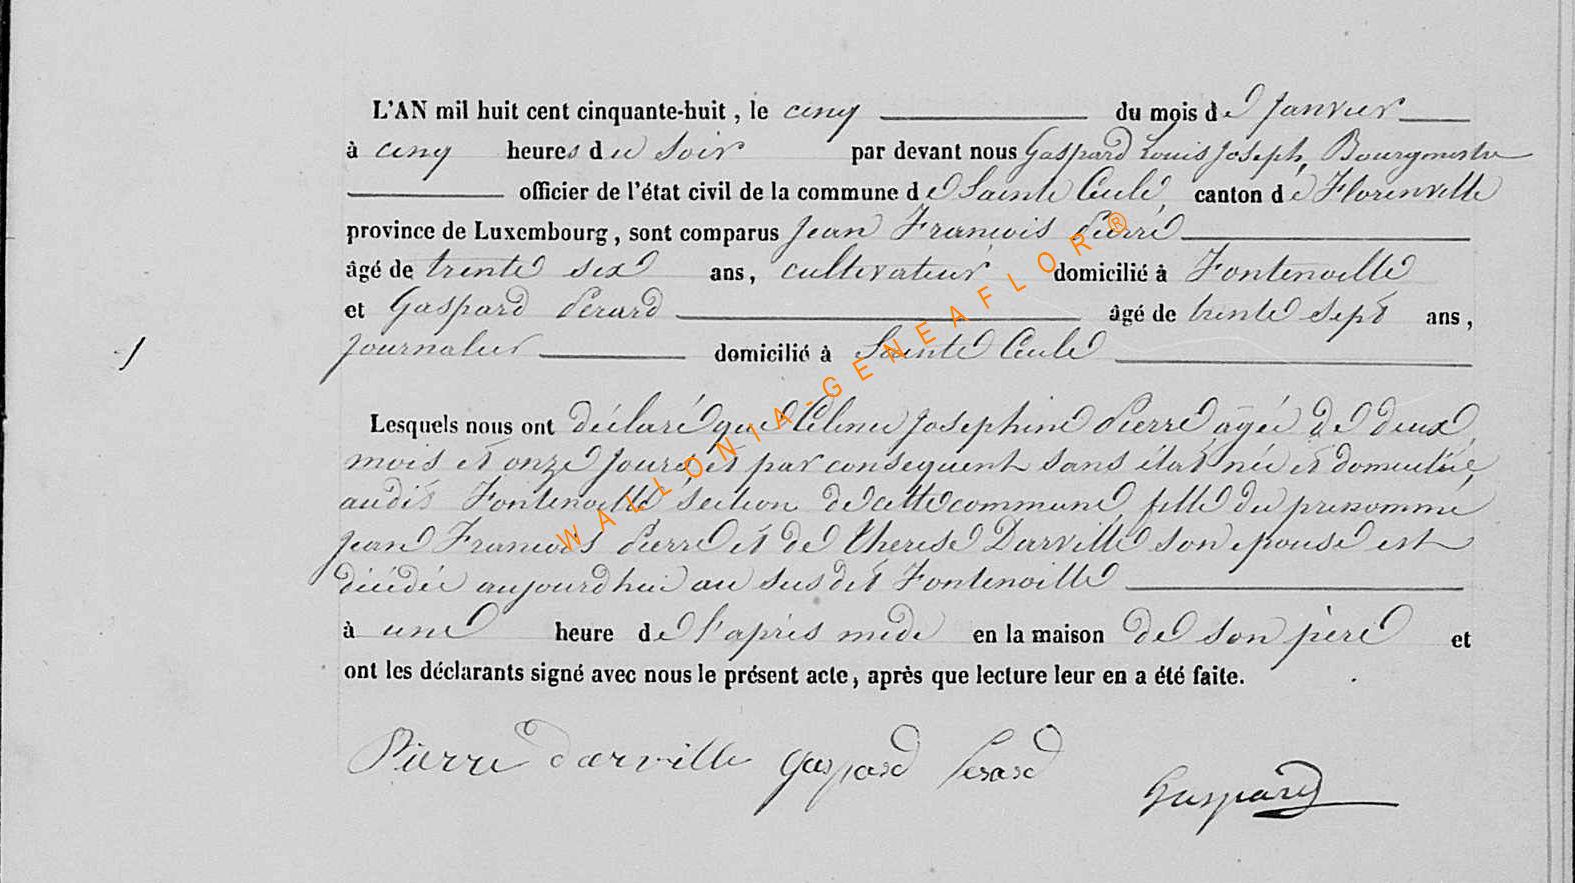 L'AN mil huit cent cinquante-huit, le cinq du mois de Janvier
à cinq heures du soir par devant nous Gaspard Louis Joseph, Bourgmestre
officier de l'état civil de la commune de Sainte Cecile, canton de Florenville
province de Luxembourg, sont comparus Jean Francois Pierre
âgé de trente six ans, cultivateur domicilié à Fontenoille
et Gaspard Perard âgé de trente sept ans,
journalier domicilié à Sainte Cecile
1
Lesquels nous ont déclaré que Celinie Josephine Pierre agée de deux
mois et onze jours, et par consequent sans état née et domiciliée,
audit Fontenoille section de cette commune, fille du prenommé
Jean Francois Pierre et de Therese Darville son epouse est
décédée aujourdhui au susdit Fontenoille
à une heure de l'après midi en la maison de son père et
ont les déclarants signé avec nous le présent acte, après que lecture leur en a été faite.
Pierre darville Gaspard Perard
Gaspard
WALLONIA-GENEAFLOR®